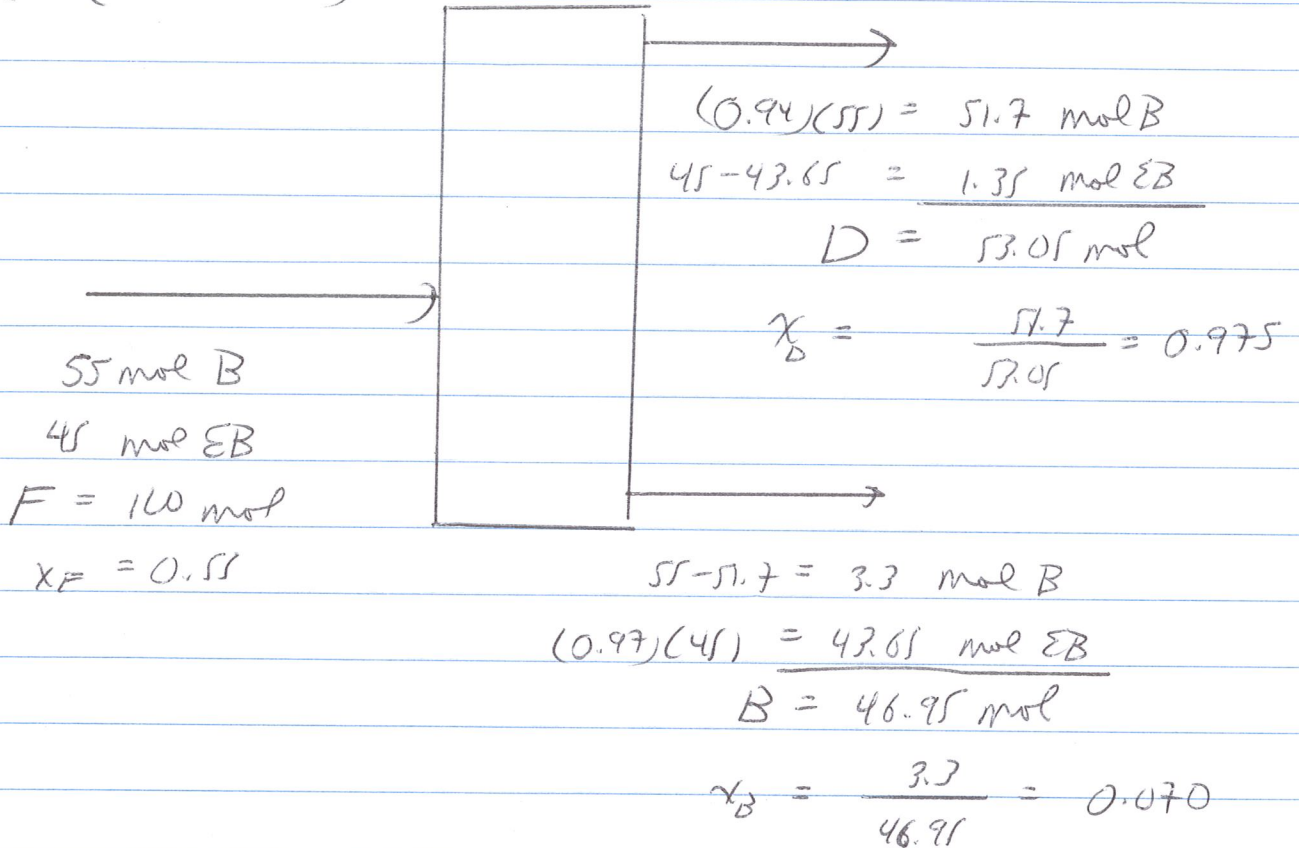 (0.94)(55) = 51.7 mol B
45-43.65 = 1.35 mol EB
D = 53.05 mol
x_D = 51.7 / 53.05 = 0.975
55 mol B
45 mol EB
F = 100 mol
x_F = 0.55
55-51.7 = 3.3 mol B
(0.97)(45) = 43.65 mol EB
B = 46.95 mol
x_B = 3.3 / 46.95 = 0.070